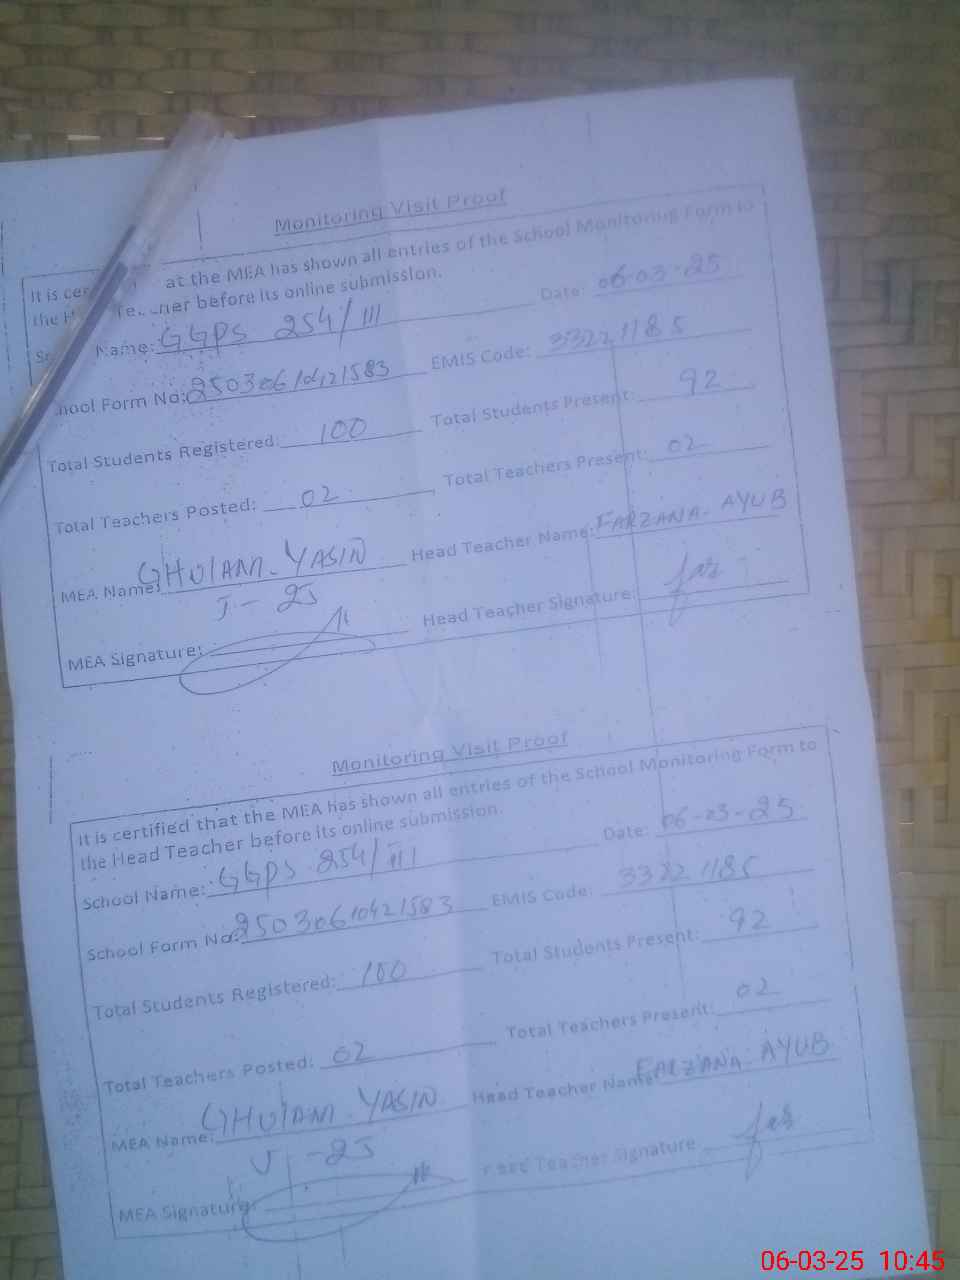 Monitoring Visit Proof
It is cer at the MEA has shown all entries of the School Monitoring Form to
the H Te her before its online submission.
Date: 06-03-25
Name: GGPS 254/III
hool Form No: 25030610421583 EMIS Code: 33221185
Total Students Registered: 100 Total Students Present: 92
Total Teachers Posted: 02 Total Teachers Present: 02
MEA Name: GHULAM-YASIN Head Teacher Name: FARZANA-AYUB
J-25
MEA Signature: Head Teacher Signature:
Monitoring Visit Proof
It is certified that the MEA has shown all entries of the School Monitoring Form to
the Head Teacher before its online submission.
Date: 06-03-25
School Name: GGPS 254/III
School Form No: 25030610421583 EMIS Code: 33221185
Total Students Registered: 100 Total Students Present: 92
Total Teachers Posted: 02 Total Teachers Present: 02
MEA Name: GHULAM-YASIN Head Teacher Name: FARZANA-AYUB
J-25
MEA Signature: Head Teacher Signature
06-03-25 10:45